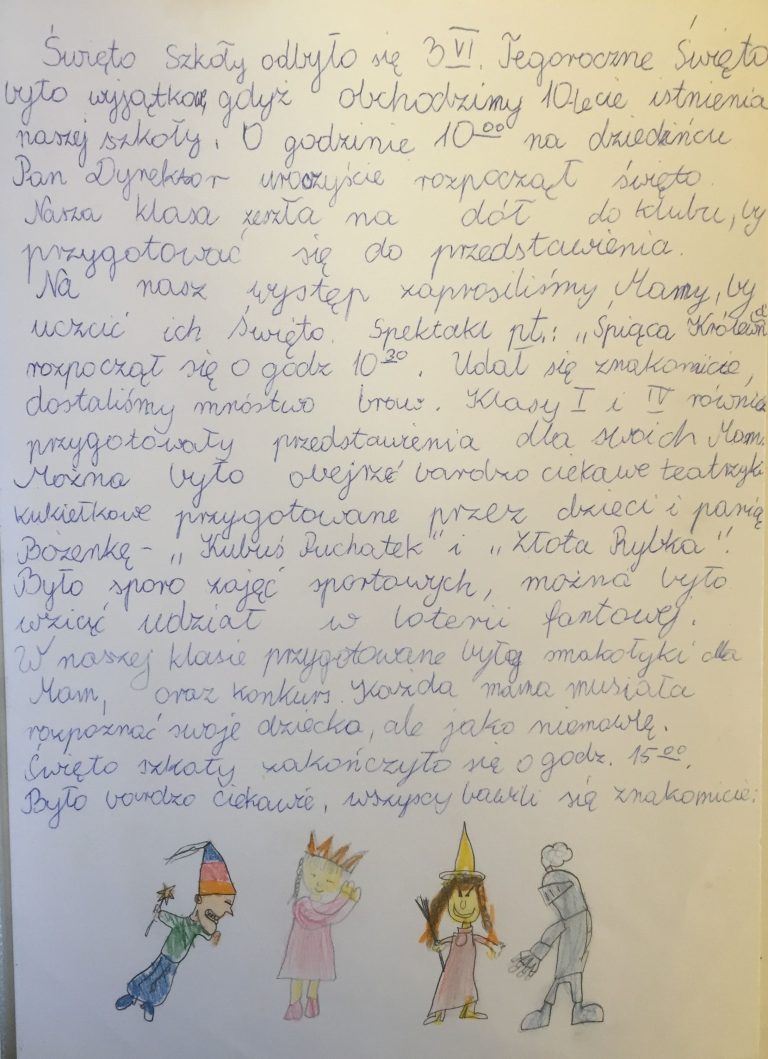 Święto Szkoły odbyło się 3 VI. Tegoroczne Święto
było wyjątkowe, gdyż obchodzimy 10-lecie istnienia
naszej szkoły. O godzinie 10 00 na dziedzińcu
Pan Dyrektor uroczyście rozpoczął święto.
Nasza klasa zeszła na dół do klubu, by
przygotować się do przedstawienia.
Na nasz występ zaprosiliśmy Mamy, by
uczcić ich Święto. Spektakl pt.: "Śpiąca Królewna"
rozpoczął się o godz 10 30. Udał się znakomicie,
dostaliśmy mnóstwo braw. Klasy I i IV również
przygotowały przedstawienia dla swoich Mam.
Można było obejrzeć bardzo ciekawe teatrzyki
kukiełkowe przygotowane przez dzieci i panią
Bożenkę - "Kubuś Puchatek" i "Złota Rybka".
Było sporo zajęć sportowych, można było
wziąć udział w loterii fantowej.
W naszej klasie przygotowane były smakołyki dla
Mam, oraz konkurs. Każda mama musiała
rozpoznać swoje dziecko, ale jako niemowlę.
Święto szkoły zakończyło się o godz. 15 00.
Było bardzo ciekawie, wszyscy bawili się znakomicie.